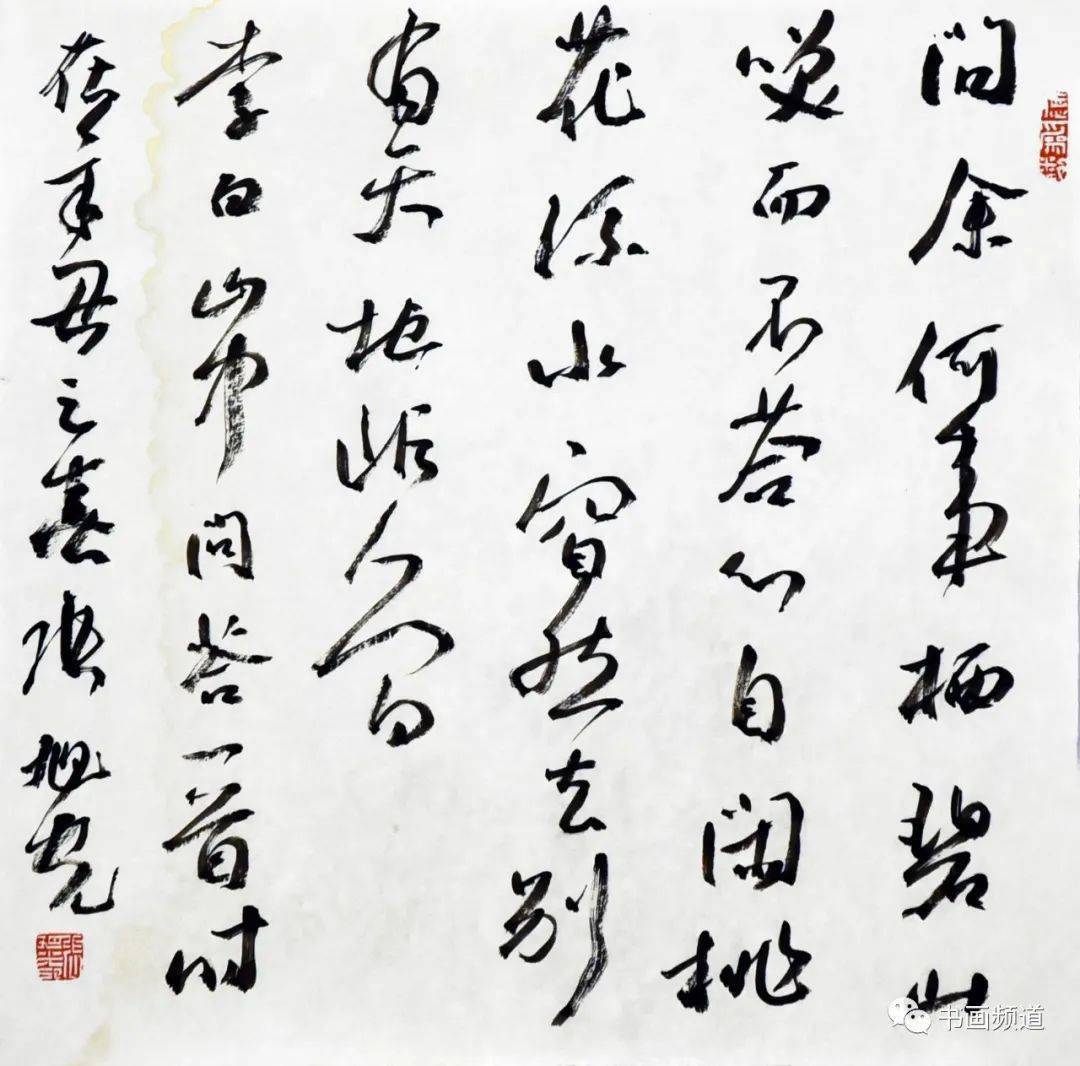 问余何事栖碧山
笑而不答心自闲桃
花流水窅然去别
有天地非人间
李白山中问答一首时
在辛丑之春张旭光
书画频道